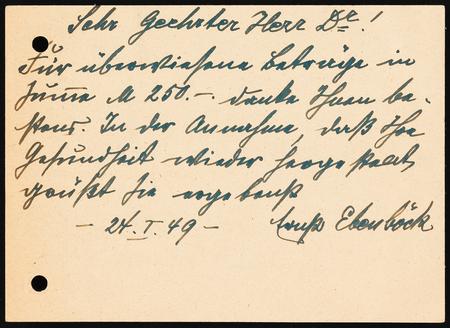 Sehr Geehrter Herr Dr.!
Für überwiesene Beträge in
Summe M 250.- danke Ihnen be-
stens. In der Annahme, daß Ihre
Gesundheit wieder hergestellt
grüßt Sie ergebenst
- 24. I. 49 - Ernst Ebenböck